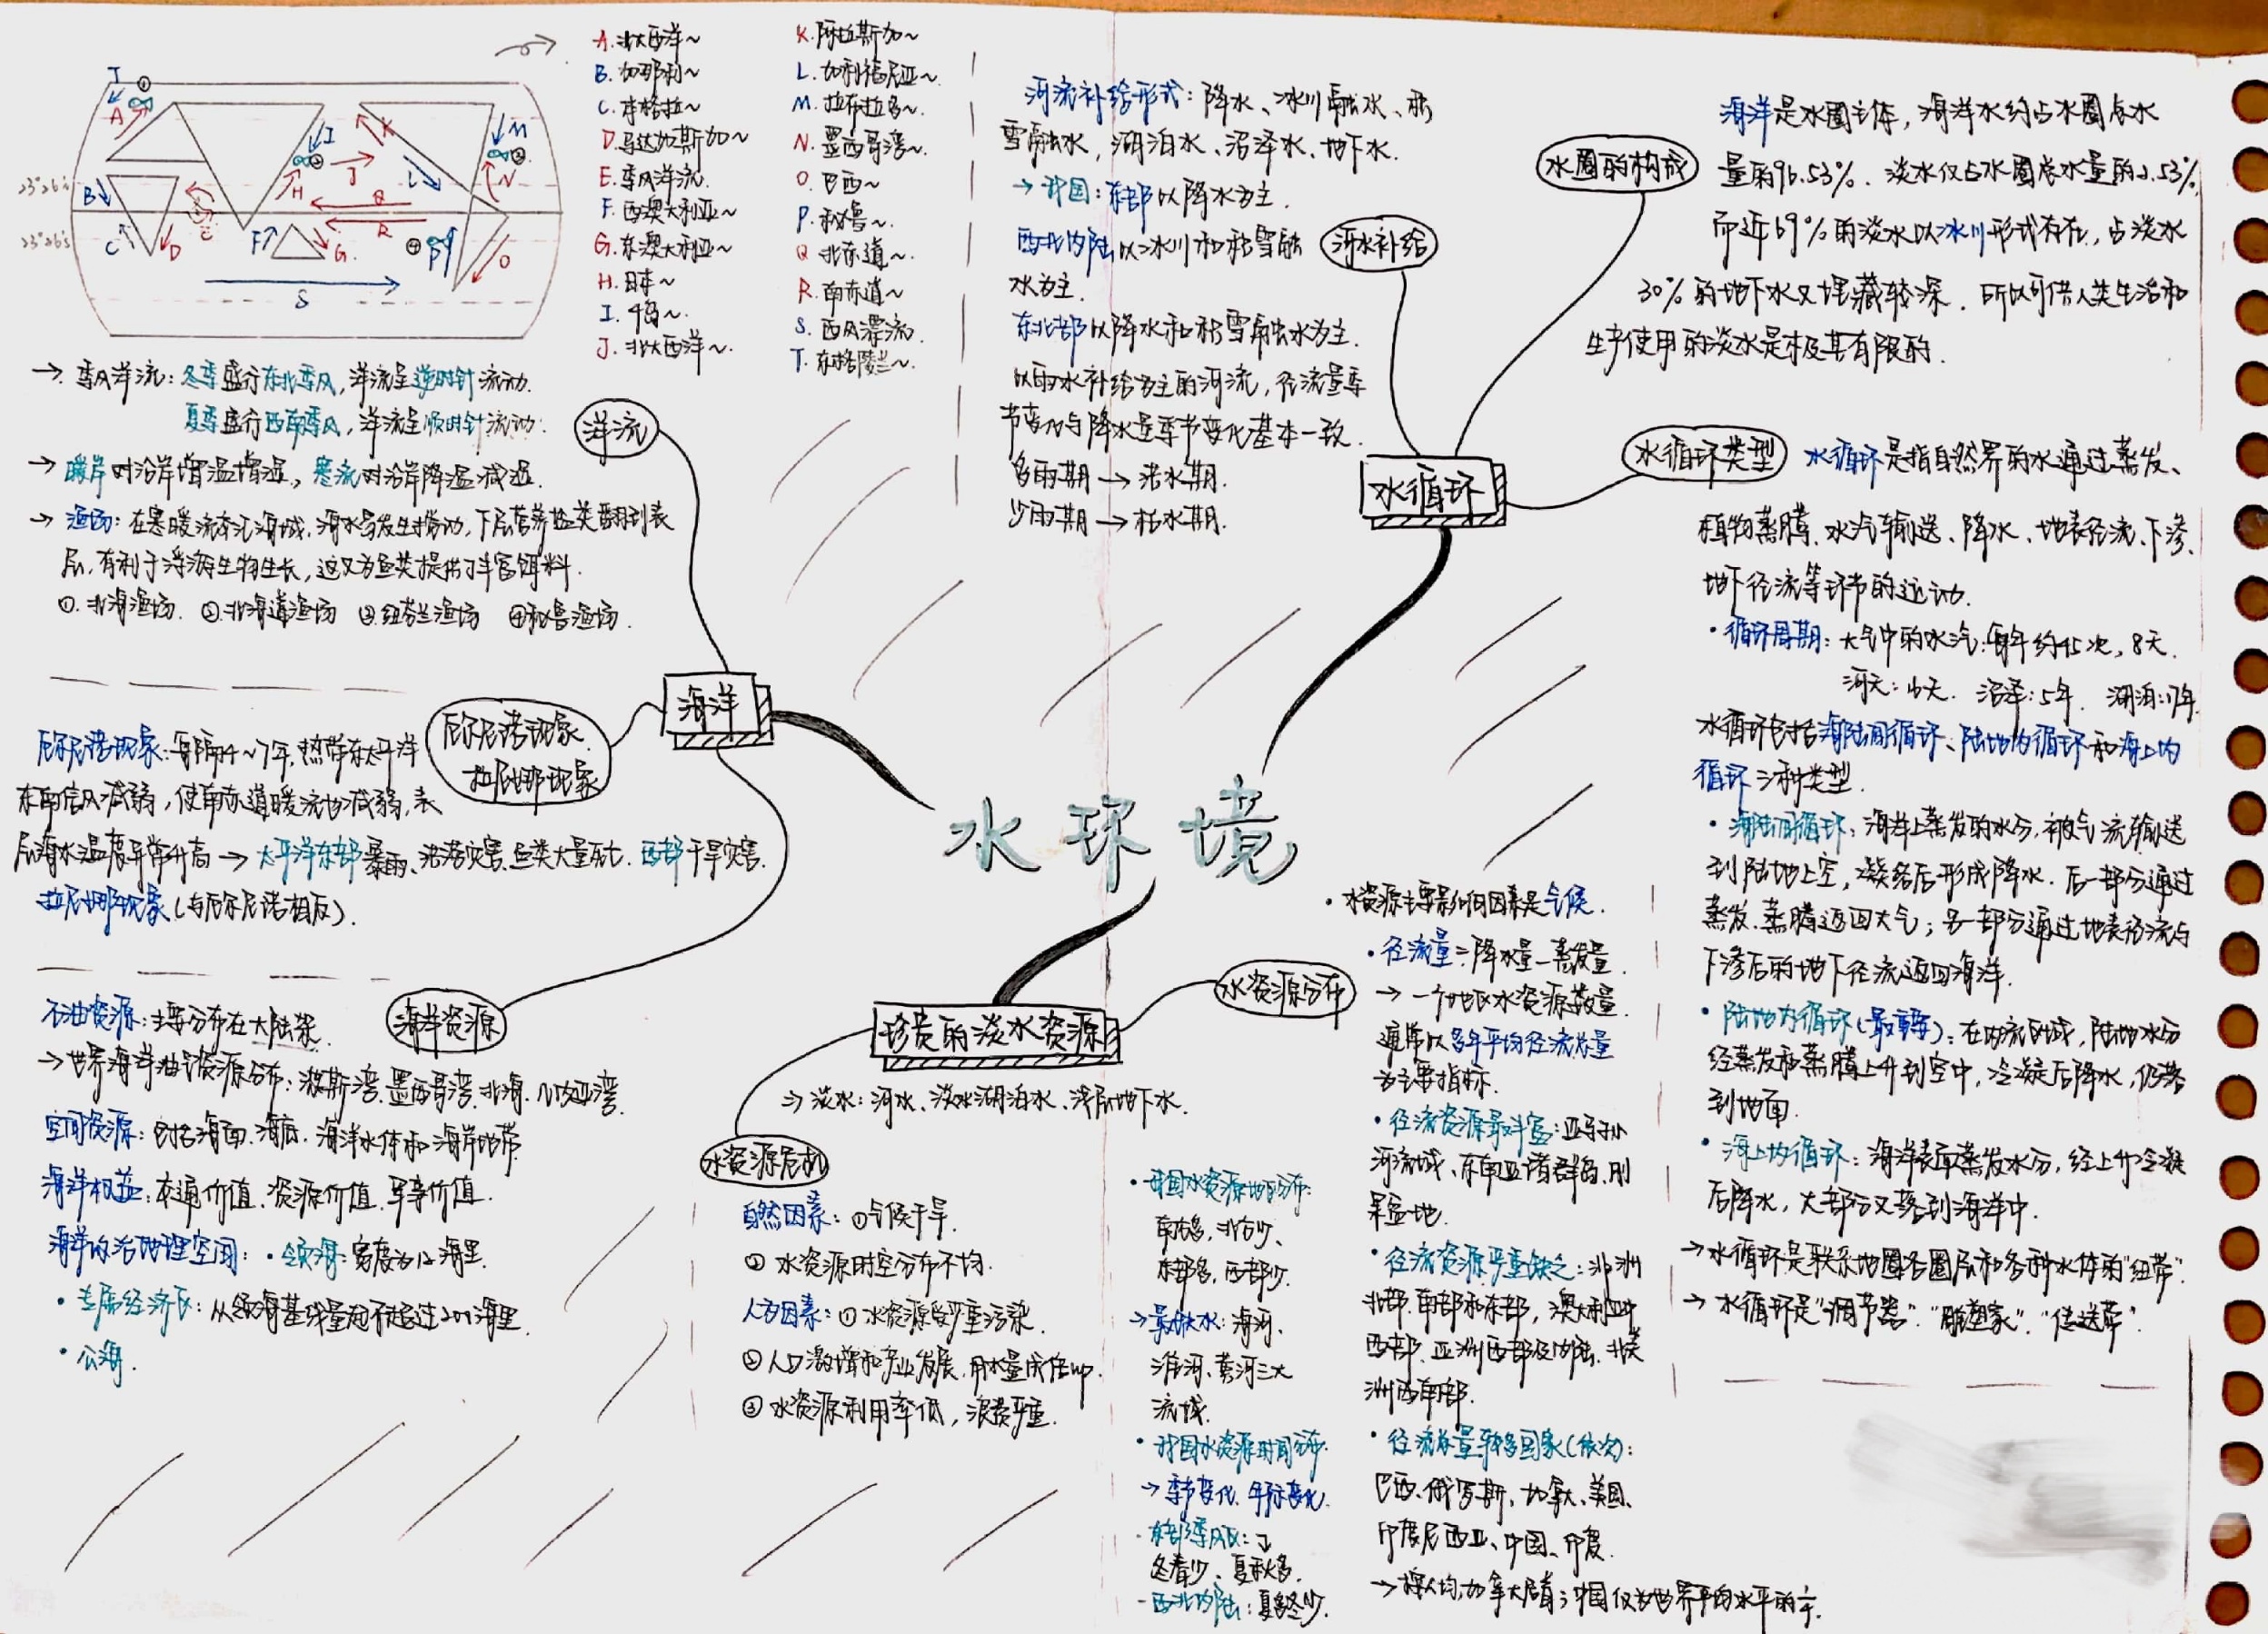 A. 北大西洋~
B. 加那利~
C. 本格拉~
D. 马达加斯加~
E. 季风洋流.
F. 西澳大利亚~
G. 东澳大利亚~
H. 日本~
I. 千岛~.
J. 北大西洋~.
K. 阿拉斯加~
L. 加利福尼亚~.
M. 拉布拉多~.
N. 墨西哥湾~.
O. 巴西~
P. 秘鲁~.
Q. 北赤道~.
R. 南赤道~
S. 西风漂流.
T. 东格陵兰~.
T ①
A
I
K
M
②
③
J
L
N
H
23°26'N
B
Q
E
R
23°26'S
C
D
F
G
④
P
O
S
→ 季风洋流: 冬季盛行东北季风, 洋流呈逆时针流动.
夏季盛行西南季风, 洋流呈顺时针流动.
洋流
→ 暖岸对沿岸增温增湿, 寒流对沿岸降温减湿.
→ 渔场: 在寒暖流交汇海域, 海水易发生搅动, 下层营养盐类翻到表
层, 有利于浮游生物生长, 这又为鱼类提供了丰富饵料.
①. 北海渔场. ②北海道渔场 ③纽芬兰渔场 ④秘鲁渔场.
海洋
厄尔尼诺现象.
拉尼娜现象
厄尔尼诺现象: 每隔4~7年, 热带东太平洋
东南信风减弱, 使南赤道暖流也减弱, 表
层海水温度异常升高 → 太平洋东部暴雨、洪涝灾害、鱼类大量死亡. 西部干旱灾害.
拉尼娜现象(与厄尔尼诺相反).
海洋资源
石油资源: 主要分布在大陆架.
→ 世界海洋油气资源分布: 波斯湾、墨西哥湾、北海、几内亚湾.
空间资源: 包括海面、海底、海洋水体和海岸地带
海洋权益: 交通价值、资源价值、军事价值.
海洋政治地理空间: ·领海: 宽度为12海里.
· 专属经济区: 从领海基线量起不超过200海里.
· 公海.
水环境
河流补给形式: 降水、冰川融水、积
雪融水, 湖泊水、沼泽水、地下水.
→ 我国: 东部以降水为主.
西北内陆以冰川和积雪融
水为主.
东北部以降水和积雪融水为主.
以雨水补给为主的河流, 径流量季
节变化与降水量季节变化基本一致.
多雨期 → 洪水期.
少雨期 → 枯水期.
河水补给
水圈的构成
海洋是水圈主体, 海洋水约占水圈总水
量的96.53%. 淡水仅占水圈总水量的2.53%,
而近69%的淡水以冰川形式存在, 占淡水
30%的地下水又埋藏较深. 所以可供人类生活和
生产使用的淡水是极其有限的.
水循环
水循环类型
水循环是指自然界的水通过蒸发、
植物蒸腾、水汽输送、降水、地表径流、下渗、
地下径流等环节的运动.
· 循环周期: 大气中的水汽: 每年约45次, 8天.
河天: 16天. 沼泽: 5年. 湖泊: 17年.
水循环包括海陆间循环、陆地内循环和海上内
循环三种类型.
· 海陆间循环: 海洋上蒸发的水分, 被气流输送
到陆地上空, 凝结后形成降水. 后一部分通过
蒸发、蒸腾返回大气; 另一部分通过地表径流与
下渗后的地下径流返回海洋.
· 陆地内循环(最重要): 在内流区域, 陆地水分
经蒸发和蒸腾上升到空中, 冷凝后降水, 仍落
到地面.
· 海上内循环: 海洋表面蒸发水分, 经上升冷凝
后降水, 大部分又落到海洋中.
→ 水循环是联系地圈各圈层和各种水体的"纽带".
→ 水循环是"调节器". "雕塑家". "传送带".
珍贵的淡水资源
⇒ 淡水: 河水、淡水湖泊水、浅层地下水.
水资源危机
自然因素: ①气候干旱.
② 水资源时空分布不均.
人为因素: ① 水资源受严重污染.
② 人口激增和产业发展, 用水量成倍up.
③ 水资源利用率低, 浪费严重.
水资源分布
· 水资源主要影响因素是气候.
· 径流量 = 降水量 - 蒸发量.
→ 一个地区水资源数量
通常以多年平均径流总量
为主要指标.
· 径流资源最丰富: 亚马孙
河流域、东南亚诸群岛、刚
果盆地.
· 径流资源严重缺乏: 非洲
北部、南部和东部, 澳大利亚中
西部、亚洲西部及内陆、北美
洲西南部.
· 径流总量较多国家(依次):
巴西、俄罗斯、加拿大、美国、
印度尼西亚、中国、印度.
→ 按人均, 加拿大居首; 中国仅为世界平均水平的
· 我国水资源地区分布:
南方多, 北方少、
东部多, 西部少.
→ 最缺水: 海河、
淮河、黄河三大
流域.
· 我国水资源时间分布:
→ 季节变化、年际变化.
· 东部季风区:
冬春少、夏秋多.
- 西北内陆: 夏多冬少.